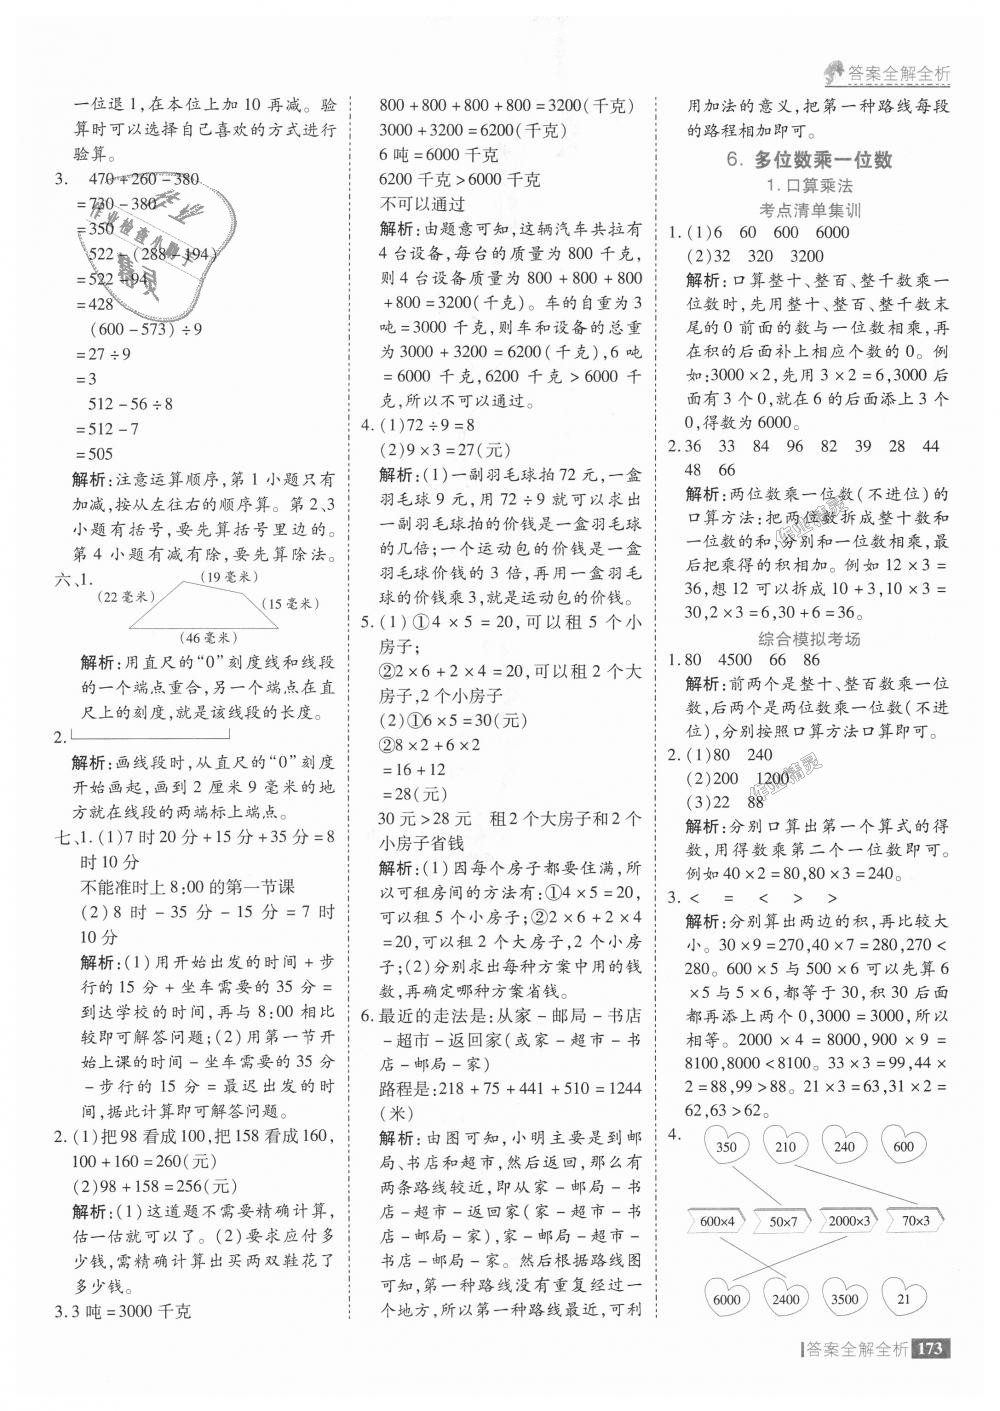 答案全解全析
一位退1,在本位上加10再减。验
算时可以选择自己喜欢的方式进行
验算。
3. 470+260-380
=730-380
=350
522-(288-194)
=522-94
=428
(600-573)÷9
=27÷9
=3
512-56÷8
=512-7
=505
解析:注意运算顺序,第1小题只有
加减,按从左往右的顺序算。第2、3
小题有括号,要先算括号里边的。
第4小题有减有除,要先算除法。
六、1. (19毫米)
(22毫米) (15毫米)
(46毫米)
解析:用直尺的“0”刻度线和线段
的一个端点重合,另一个端点在直
尺上的刻度,就是该线段的长度。
2.
解析:画线段时,从直尺的“0”刻度
开始画起,画到2厘米9毫米的地
方就在线段的两端标上端点。
七、1.(1)7时20分+15分+35分=8
时10分
不能准时上8:00的第一节课
(2)8时-35分-15分=7时
10分
解析:(1)用开始出发的时间+步
行的15分+坐车需要的35分=
到达学校的时间,再与8:00相比
较即可解答问题;(2)用第一节开
始上课的时间-坐车需要的35分
-步行的15分=最迟出发的时
间,据此计算即可解答问题。
2.(1)把98看成100,把158看成160,
100+160=260(元)
(2)98+158=256(元)
解析:(1)这道题不需要精确计算,
估一估就可以了。(2)要求应付多
少钱,需精确计算出买两双鞋花了
多少钱。
3.3吨=3000千克
800+800+800+800=3200(千克)
3000+3200=6200(千克)
6吨=6000千克
6200千克>6000千克
不可以通过
解析:由题意可知,这辆汽车共拉有
4台设备,每台的质量为800千克,
则4台设备质量为800+800+800
+800=3200(千克)。车的自重为3
吨=3000千克,则车和设备的总重
为3000+3200=6200(千克),6吨
=6000千克,6200千克>6000千
克,所以不可以通过。
4.(1)72÷9=8
(2)9×3=27(元)
解析:(1)一副羽毛球拍72元,一盒
羽毛球9元,用72÷9就可以求出
一副羽毛球拍的价钱是一盒羽毛球
的几倍;一个运动包的价钱是一盒
羽毛球价钱的3倍,再用一盒羽毛
球的价钱乘3,就是运动包的价钱。
5.(1)①4×5=20,可以租5个小
房子;
②2×6+2×4=20,可以租2个大
房子,2个小房子
(2)①6×5=30(元)
②8×2+6×2
=16+12
=28(元)
30元>28元 租2个大房子和2个
小房子省钱
解析:(1)因每个房子都要住满,所
以可租房间的方法有:①4×5=20,
可以租5个小房子;②2×6+2×4
=20,可以租2个大房子,2个小房
子;(2)分别求出每种方案中用的钱
数,再确定哪种方案省钱。
6.最近的走法是:从家-邮局-书店
-超市-返回家(或家-超市-书
店-邮局-家)
路程是:218+75+441+510=1244
(米)
解析:由图可知,小明主要是到邮
局、书店和超市,然后返回,那么有
两条路线较近,即从家-邮局-书
店-超市-返回家(或家-超市-书
店-邮局-家),家-邮局-超市-
书店-邮局-家。然后根据路线图
可知,第一种路线没有重复经过一
个地方,所以第一种路线最近,可利
用加法的意义,把第一种路线每段
的路程相加即可。
6. 多位数乘一位数
1.口算乘法
考点清单集训
1.(1)6 60 600 6000
(2)32 320 3200
解析:口算整十、整百、整千数乘一
位数时,先用整十、整百、整千数末
尾的0前面的数与一位数相乘,再
在积的后面补上相应个数的0。例
如:3000×2,先用3×2=6,3000后
面有3个0,就在6的后面添上3个
0,得数为6000。
2.36 33 84 96 82 39 28 44
48 66
解析:两位数乘一位数(不进位)的
口算方法:把两位数拆成整十数和
一位数的和,分别和一位数相乘,最
后把乘得的积相加。例如12×3=
36,想12可以拆成10+3,10×3=
30,2×3=6,30+6=36。
综合模拟考场
1.80 4500 66 86
解析:前两个是整十、整百数乘一位
数,后两个是两位数乘一位数(不进
位),分别按照口算方法口算即可。
2.(1)80 240
(2)200 1200
(3)22 88
解析:分别口算出第一个算式的得
数,用得数乘第二个一位数即可。
例如40×2=80,80×3=240。
3.< = < > >
解析:分别算出两边的积,再比较大
小。30×9=270,40×7=280,270<
280。600×5与500×6可以先算6
×5与5×6,都等于30,积30后面
都再添上两个0,3000=3000,所以
相等。2000×4=8000,900×9=
8100,8000<8100。33×3=99,44×
2=88,99>88。21×3=63,31×2=
62,63>62。
4. 350 210 240 600
600×4 50×7 2000×3 70×3
6000 2400 3500 21
答案全解全析 173
作业检查小助手
作业精灵
作业精灵